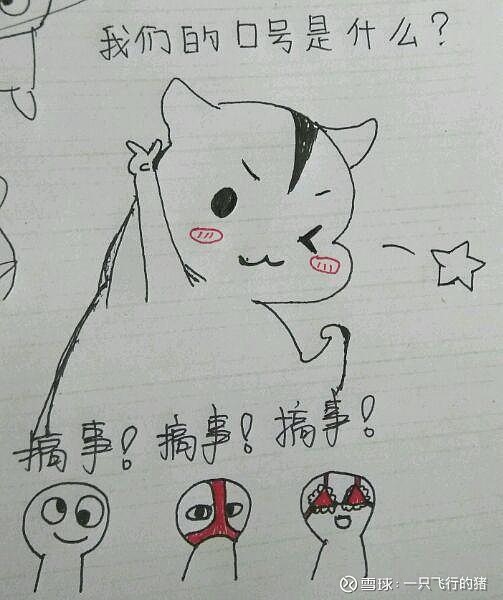 我们的口号是什么?
搞事! 搞事! 搞事!
雪球:一只飞行的猪